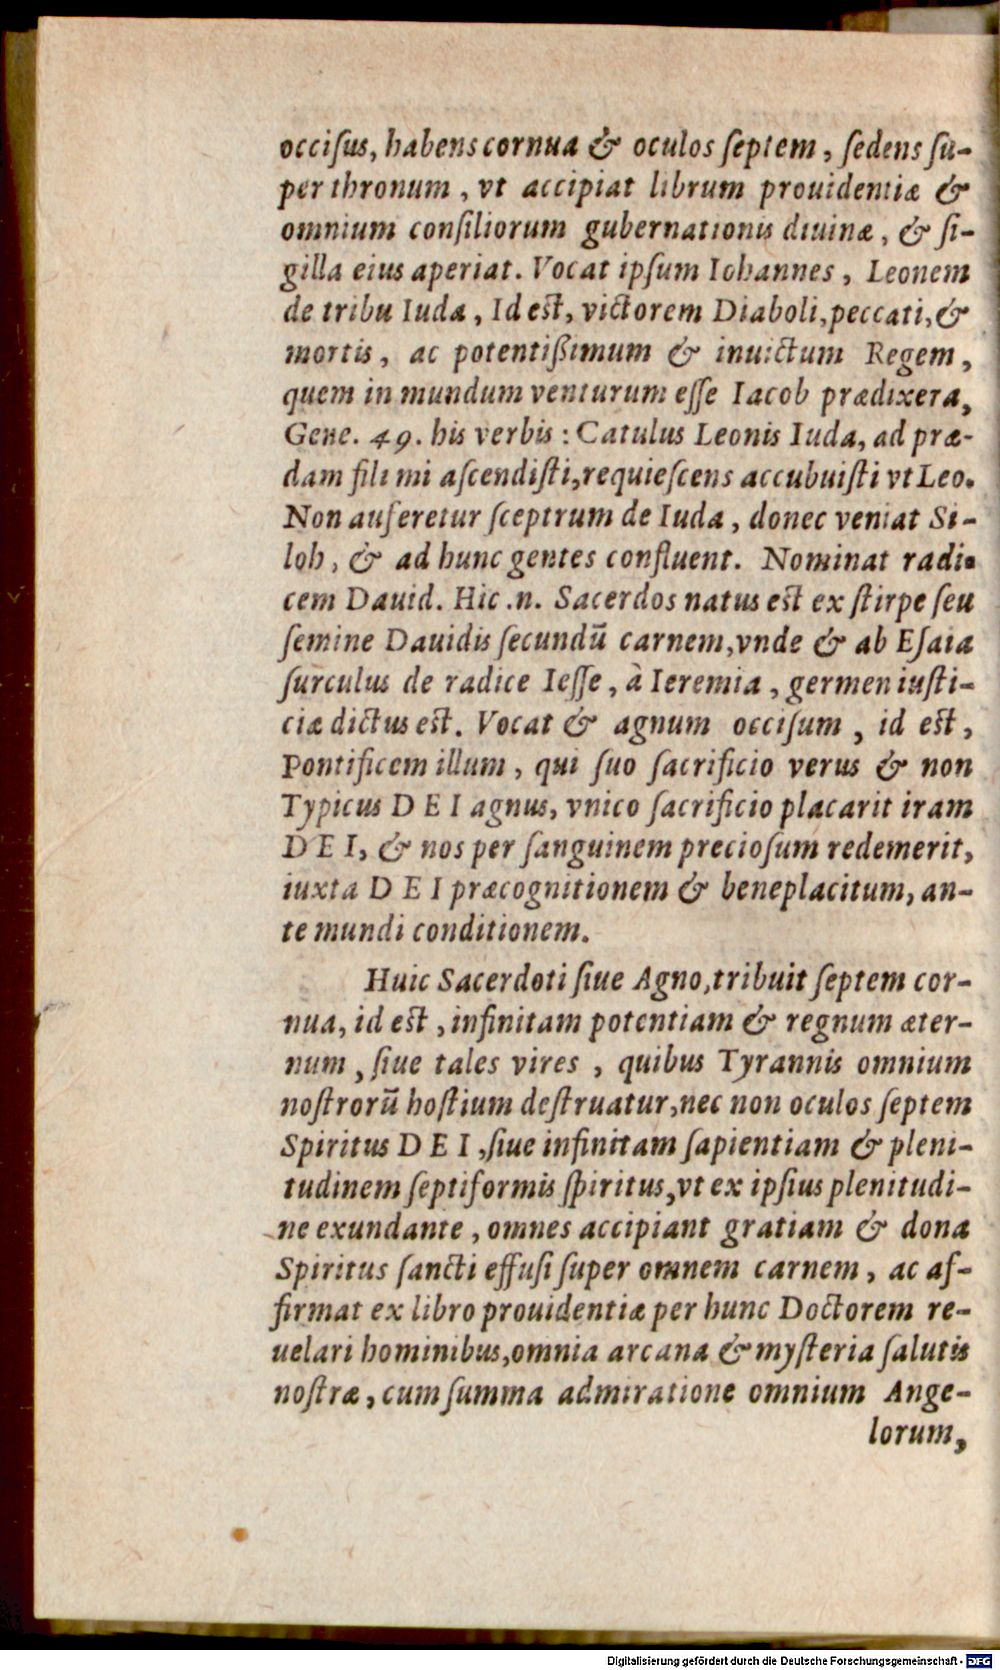 occiſus, habens cornua & oculos ſeptem, ſedens ſu-
per thronum, vt accipiat librum prouidentiæ &
omnium conſiliorum gubernationis diuinæ, & ſi-
gilla eius aperiat. Vocat ipſum Iohannes, Leonem
de tribu Iuda, Id est, victorem Diaboli, peccati, &
mortis, ac potentißimum & inuictum Regem,
quem in mundum venturum eſſe Iacob prædixera,
Gene. 49. his verbis: Catulus Leonis Iuda, ad præ-
dam fili mi aſcendiſti, requieſcens accubuiſti vt Leo.
Non auferetur ſceptrum de Iuda, donec veniat Si-
loh, & ad hunc gentes confluent. Nominat radi-
cem Dauid. Hic .n. Sacerdos natus est ex ſtirpe ſeu
ſemine Dauidis ſecundū carnem, vnde & ab Eſaia
ſurculus de radice Ieſſe, à Ieremia, germen iuſti-
ciæ dictus est. Vocat & agnum occiſum, id est,
Pontificem illum, qui ſuo ſacrificio verus & non
Typicus DEI agnus, vnico ſacrificio placarit iram
DEI, & nos per ſanguinem precioſum redemerit,
iuxta DEI præcognitionem & beneplacitum, an-
te mundi conditionem.
Huic Sacerdoti ſiue Agno, tribuit ſeptem cor-
nua, id est, infinitam potentiam & regnum æter-
num, ſiue tales vires, quibus Tyrannis omnium
noſtrorū hoſtium deſtruatur, nec non oculos ſeptem
Spiritus DEI, ſiue infinitam ſapientiam & pleni-
tudinem ſeptiformis ſpiritus, vt ex ipſius plenitudi-
ne exundante, omnes accipiant gratiam & dona
Spiritus ſancti effuſi ſuper omnem carnem, ac af-
firmat ex libro prouidentiæ per hunc Doctorem re-
uelari hominibus, omnia arcana & myſteria ſalutis
noſtræ, cum ſumma admiratione omnium Ange-
lorum,
Digitalisierung gefördert durch die Deutsche Forschungsgemeinschaft - DFG